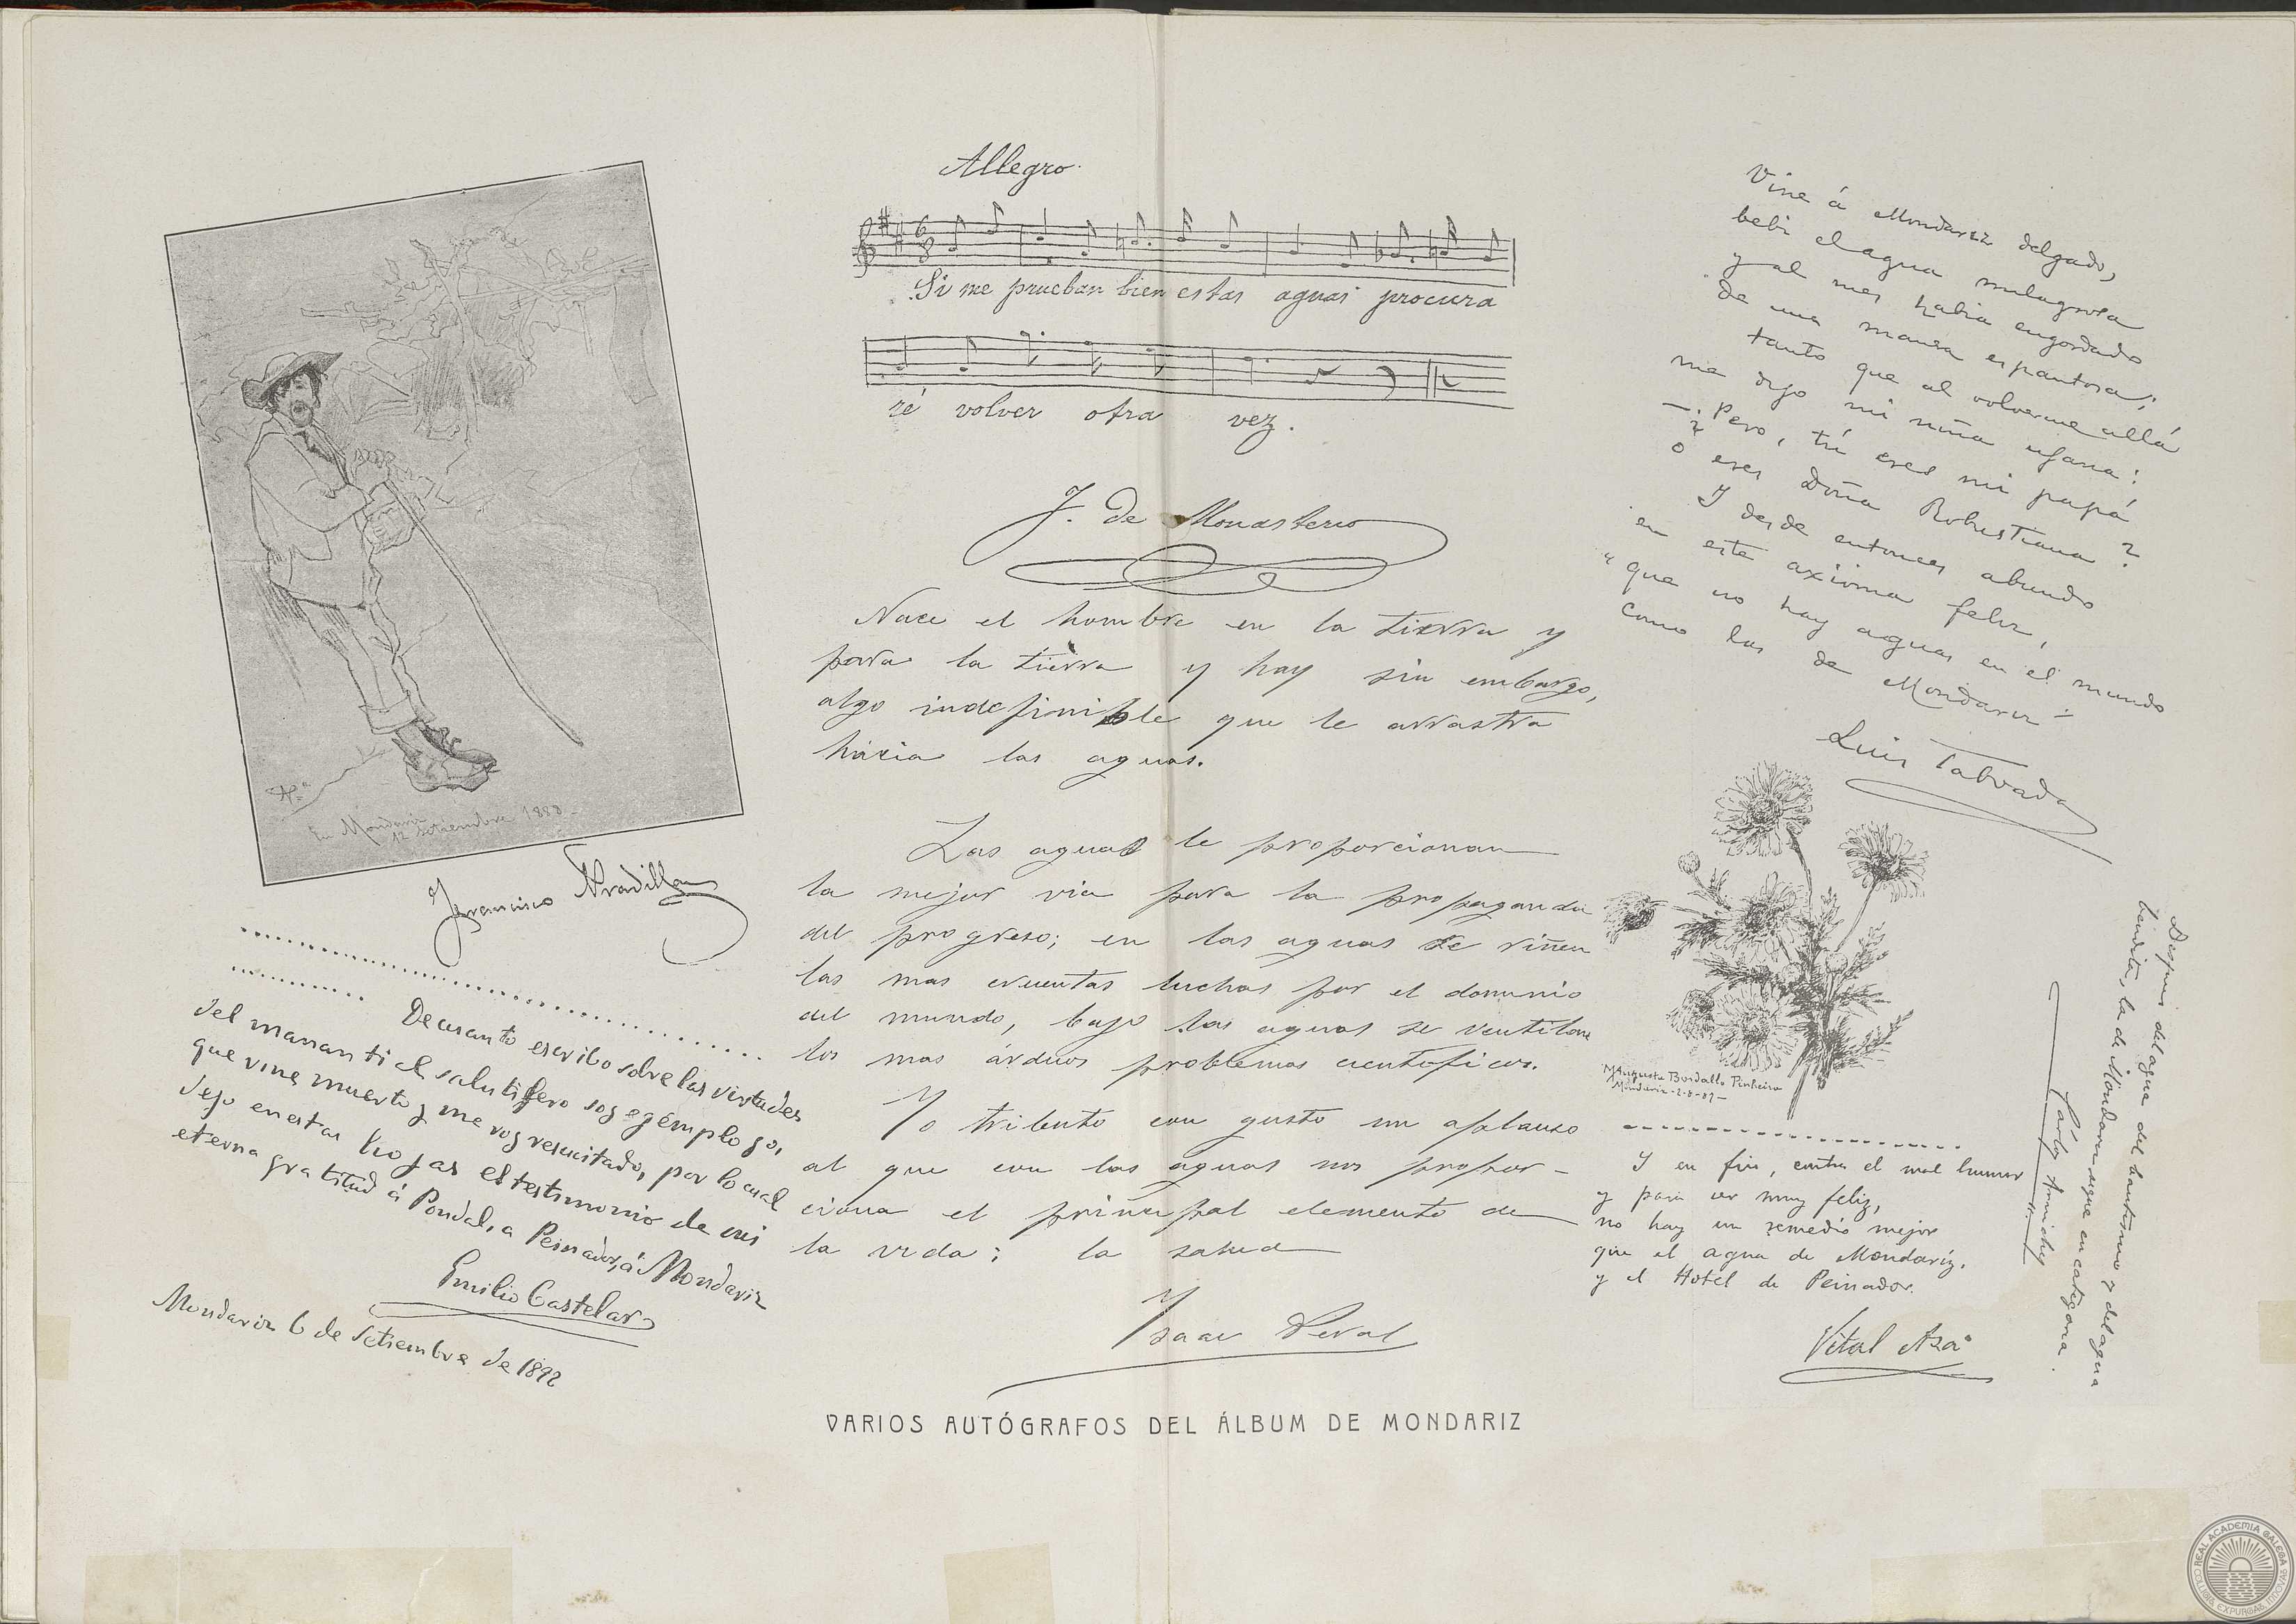 En Mondariz
12 Setiembre 1880
Francisco Pradilla
De cuanto escribo sobre las virtudes
del manantial salutifero soy egémplo yo,
que vine muerto y me voy resucitado, por lo cual
dejo en estas hojas el testimonio de mi
eterna gratitud á Pondal, a Peinador, á Mondariz
Emilio Castelar
Mondariz 6 de Setiembre de 1892
Allegro
Si me prueban bien estas aguas procura
ré volver otra vez.
J. de Monasterio
Nace el hombre en la tierra y
para la tierra y hay sin embargo,
algo indefinible que le arrastra
hácia las aguas.
Las aguas le proporcionan
la mejor via para la propaganda
del progreso; en las aguas se riñen
las mas cruentas luchas por el dominio
del mundo, bajo las aguas se ventilan
los mas árduos problemas cientificos.
Yo tributo con gusto un aplauso
al que con las aguas nos propor-
ciona el principal elemento de
la vida; la salud
Isaac Peral
Vine á Mondariz delgado,
bebi el agua milagrosa
y al mes habia engordado
de una manera espantosa;
tanto que al volverme allá
me dijo mi niña ufana:
—¿Pero, tú eres mi papá
o eres Doña Robustiana?
Y desde entonces abundo
en este axioma feliz,
"que no hay aguas en el mundo
como las de Mondariz"
Luis Taboada
Mª Augusta Bordallo Pinheiro
Mondariz-2-8-87-
Despues del agua del bautismo y del agua
bendita, la de Mondariz sigue en categoria.
Cárlos Arniches
Y en fin, contra el mal humor
y para ser muy feliz,
no hay un remedio mejor
que el agua de Mondaríz,
y el Hotel de Peinador.
Vital Aza
VARIOS AUTÓGRAFOS DEL ÁLBUM DE MONDARIZ
REAL ACADEMIA GALEGA
COLLIGIT EXPURGAT INNOVAT